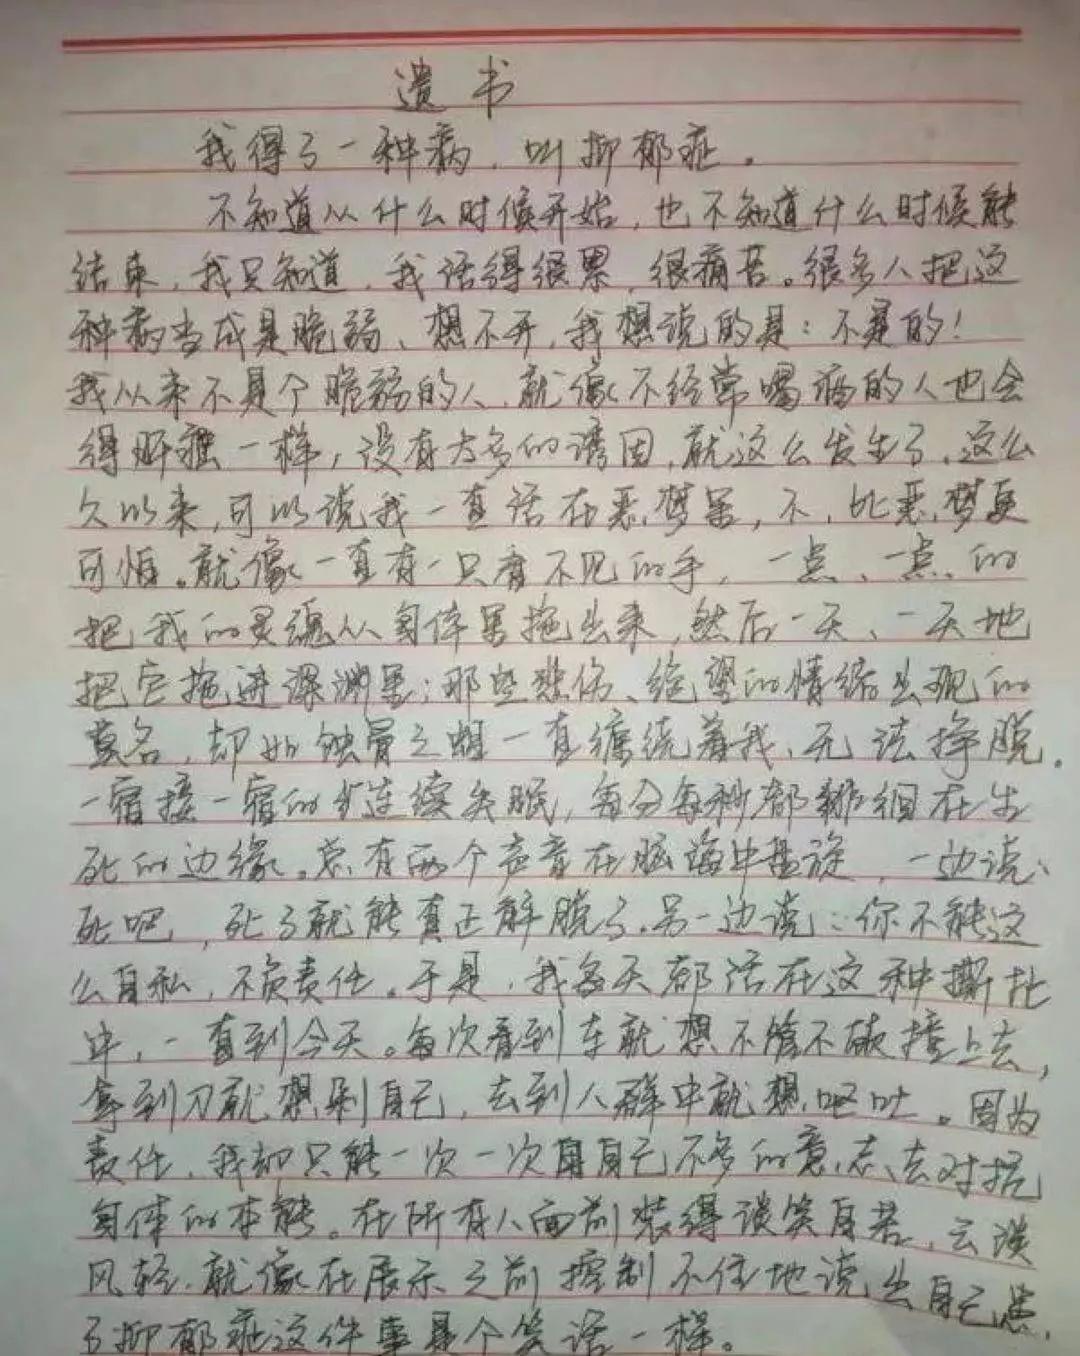 遗书
我得了一种病，叫抑郁症。
不知道从什么时候开始，也不知道什么时候能
结束，我只知道，我活得很累，很痛苦。很多人把这
种病当成是脆弱、想不开，我想说的是：不是的！
我从来不是个脆弱的人，就像不经常喝酒的人也会
得肝癌一样，没有太多的诱因，就这么发生了，这么
久以来，可以说我一直活在恶梦里，不，比恶梦更
可怕。就像一直有一只看不见的手，一点、一点的
把我的灵魂从身体里拖出来，然后一天、一天地
把它拖进深渊里；那些悲伤、绝望的情绪出现的
莫名，却如蚀骨之蛆一直缠绕着我、无法挣脱。
一宿接一宿的连续失眠，每分每秒都徘徊在生
死的边缘。总有两个声音在脑海中盘旋，一边说：
死吧，死了就能真正解脱了。另一边说：你不能这
么自私，不负责任。于是，我每天都活在这种撕扯
中，一直到今天。每次看到车就想不管不顾撞上去，
拿到刀就想剁自己，去到人群中就想呕吐。因为
责任，我却只能一次一次用自己不多的意志去对抗
身体的本能。在所有人面前装得谈笑自若，云淡
风轻，就像在展示之前控制不住地说出自己患
了抑郁症这件事是个笑话一样。